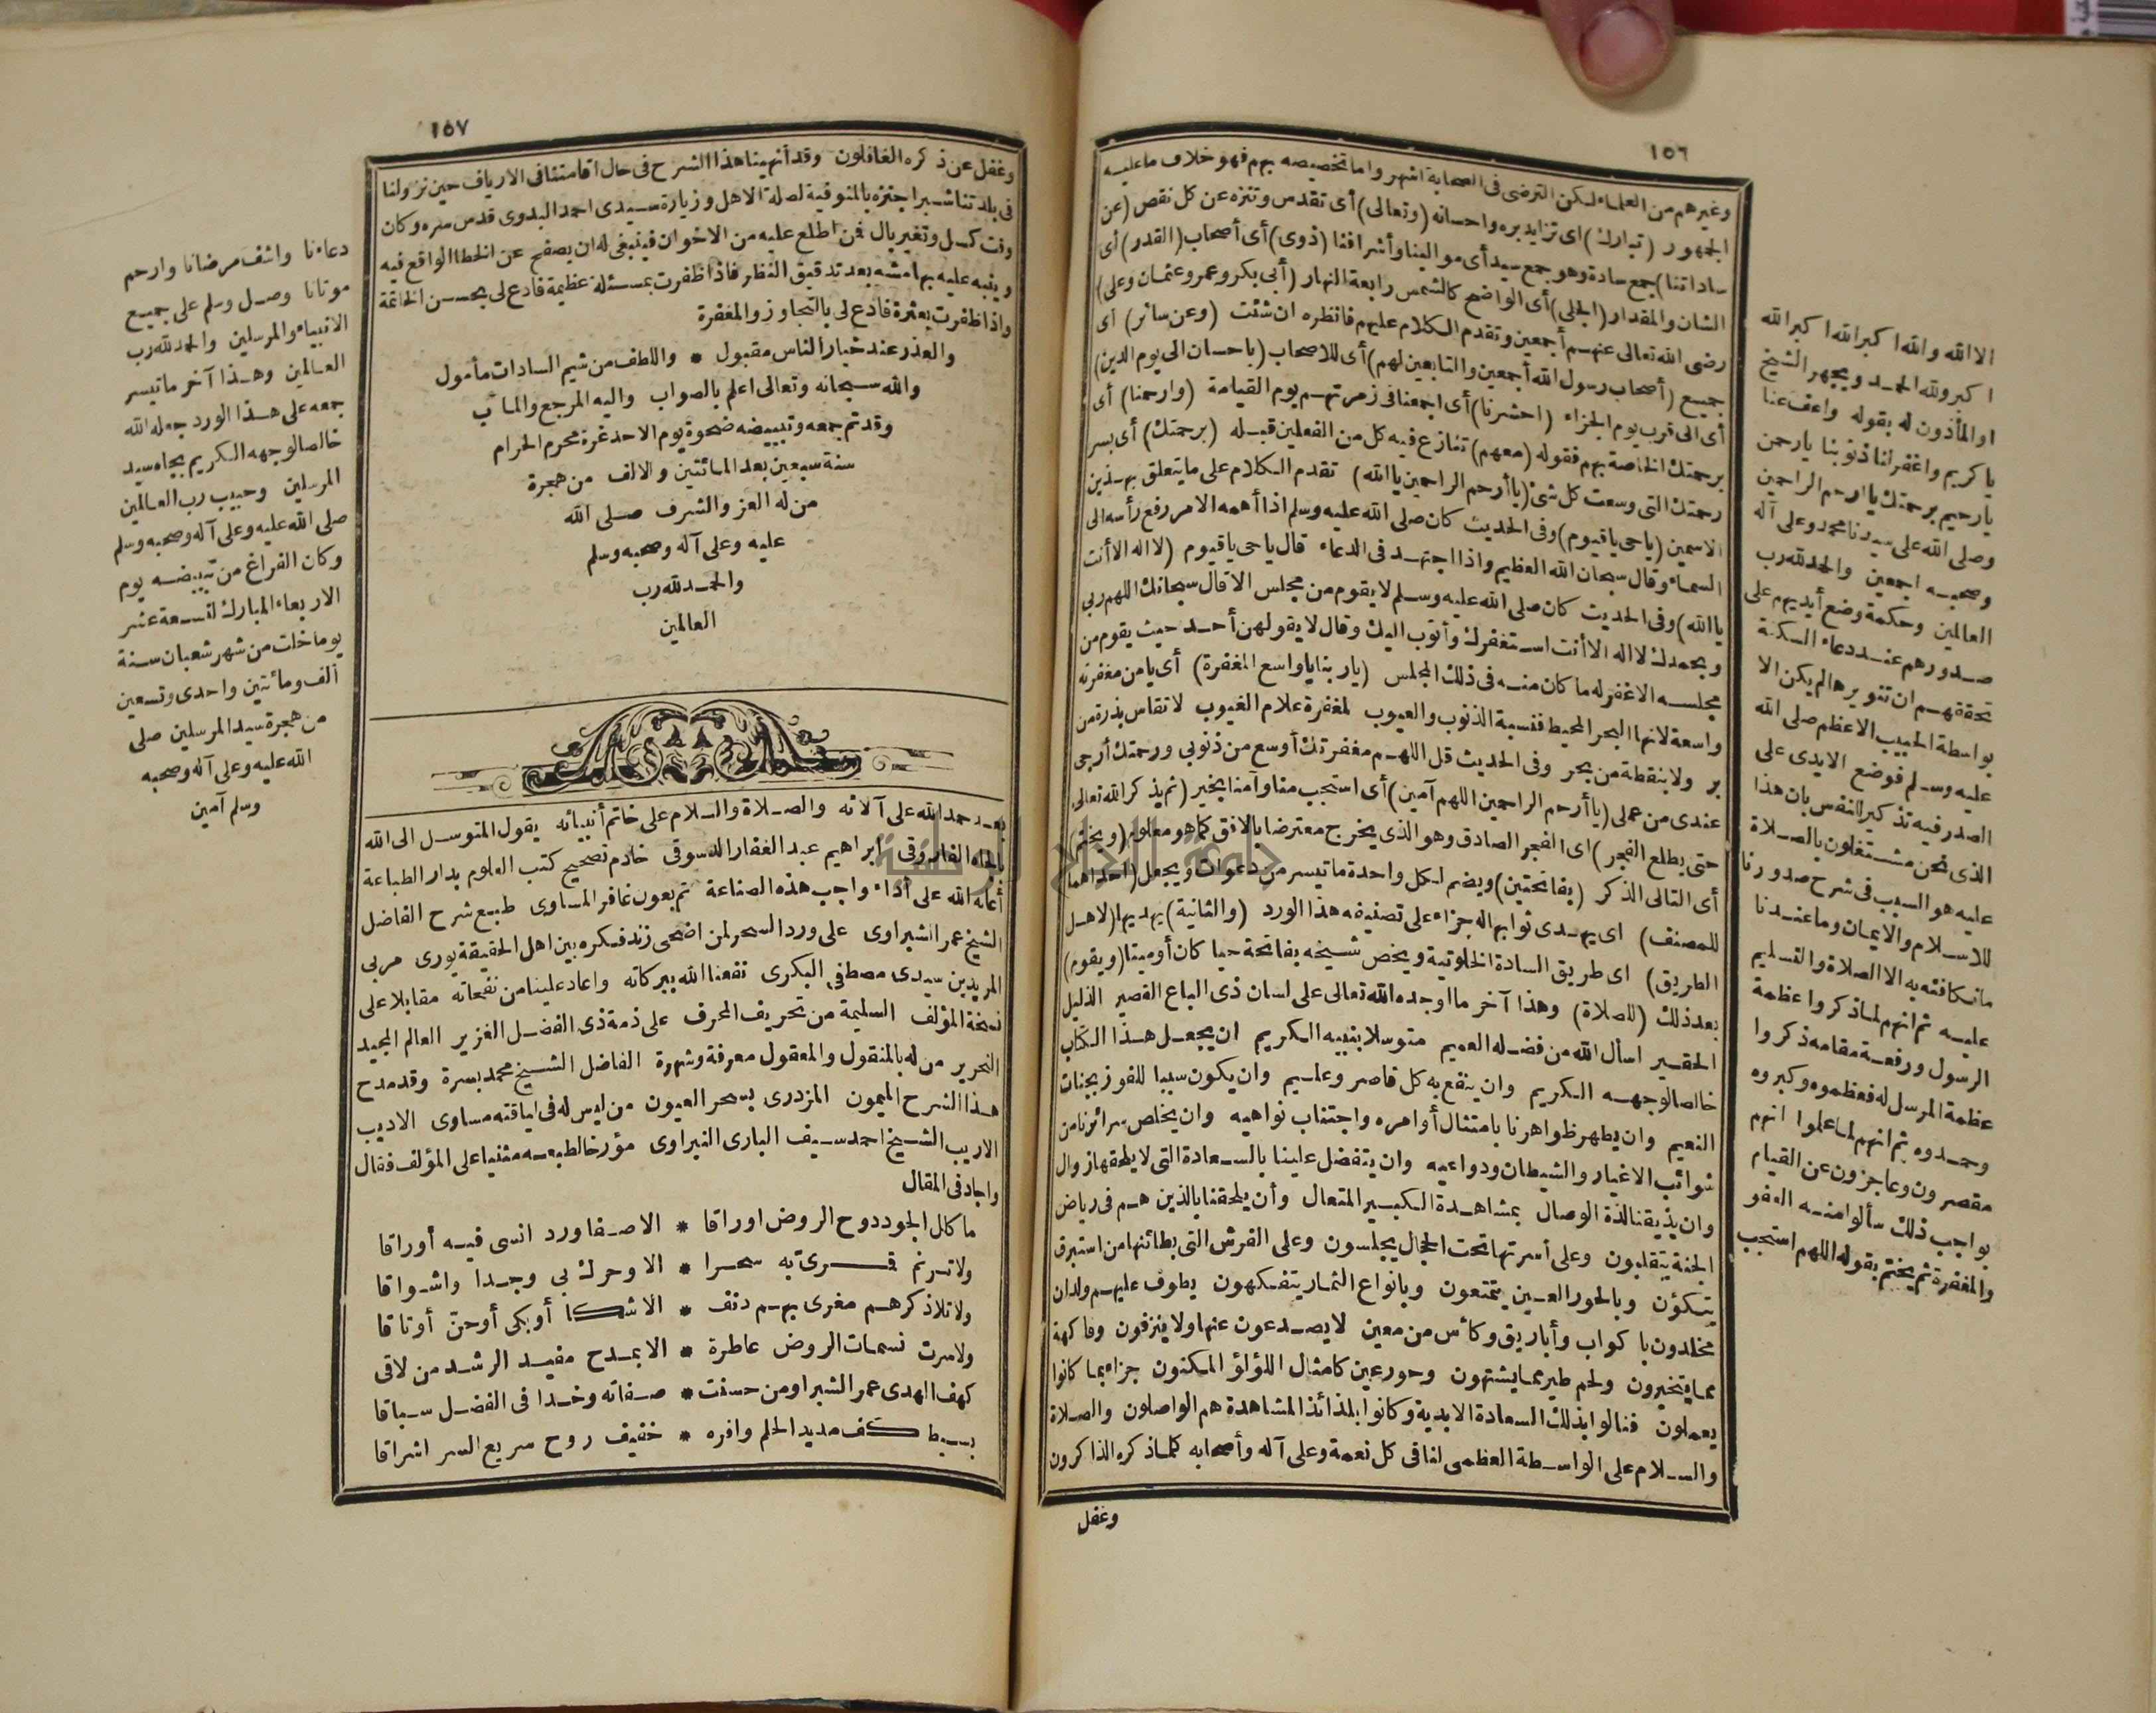 ١٥٦
وغيرهم من العلماء لكن الترضى فى الصحابة اشهر واما تخصيصه بهم فهو خلاف ما عليه
الجمهور (تبارك) اى تزايد بره واحسانه (وتعالى) أى تقدس وتنزه عن كل نقص (عن
ساداتنا) جمع سادة وهو جمع سيد أى موالينا وأشرافنا (ذوى) أى أصحاب (القدر) أى
الشان والمقدار (الجلى) أى الواضح كالشمس رابعة النهار (أبى بكر وعمر وعثمان وعلى)
رضى الله تعالى عنهم أجمعين وتقدم الكلام عليهم فانظره ان شئت (وعن سائر) أى
جميع (أصحاب رسول الله أجمعين والتابعين لهم) أى للاصحاب (باحسان الى يوم الدين)
أى الى قرب يوم الجزاء (احشرنا) أى اجمعنا فى زمرتهم يوم القيامة (وارحمنا) أى
برحمتك الخاصة بهم فقوله (معهم) تنازع فيه كل من الفعلين قبله (برحمتك) أى بسر
رحمتك التى وسعت كل شئ (يا أرحم الراحمين يا الله) تقدم الكلام على ما يتعلق بهذين
الاسمين (يا حى يا قيوم) وفى الحديث كان صلى الله عليه وسلم اذا أهمه الامر رفع رأسه الى
السماء وقال سبحان الله العظيم واذا اجتهد فى الدعاء قال يا حى يا قيوم (لا اله الا أنت
يا الله) وفى الحديث كان صلى الله عليه وسلم لا يقوم من مجلس الا قال سبحانك اللهم ربى
وبحمدك لا اله الا أنت استغفرك وأتوب اليك وقال لا يقولهن أحد حيث يقوم من
مجلسه الا غفر له ما كان منه فى ذلك المجلس (يا ربنا يا واسع المغفرة) أى يا من مغفرته
واسعة لانها البحر المحيط فنسبة الذنوب والعيوب لمغفرة علام الغيوب لا تقاس بذرة من
بر ولا بنقطة من بحر وفى الحديث قل اللهم مغفرتك أوسع من ذنوبى ورحمتك أرجى
عندى من عملى (يا أرحم الراحمين اللهم آمين) أى استجب منا وآمنا بخير (ثم يذكر الله تعالى
حتى يطلع الفجر) اى الفجر الصادق وهو الذى يخرج معترضا بالافق كما هو معلوم (ويختم)
أى التالى الذكر (بفاتحتين) ويضم لكل واحدة ما تيسر من دعوات ويجعل (احداهما
للمصنف) اى يهدى ثوابها له جزاء على تصنيفه هذا الورد (والثانية) يهديها (لاهل
الطريق) اى طريق السادة الخلوتية ويخص شيخه بفاتحة حيا كان أو ميتا (ويقوم)
بعد ذلك (للصلاة) وهذا آخر ما اوجده الله تعالى على لسان ذى الباع القصير الذليل
الحقير اسأل الله من فضله العميم متوسلا بنبيه الكريم ان يجعل هذا الكتاب
خالصا لوجهه الكريم وان ينفع به كل قاصر وعليم وان يكون سببا للفوز بجنات
النعيم وان يطهر ظواهرنا بامتثال أوامره واجتناب نواهيه وان يخلص سرائرنا من
شوائب الاغيار والشيطان ودواعيه وان يتفضل علينا بالسعادة التى لا يلحقها زوال
وان يذيقنا لذة الوصال بمشاهدة الكبير المتعال وأن يلحقنا بالذين هم فى رياض
الجنة يتقلبون وعلى أسرتها تحت الحجال يجلسون وعلى الفرش التى بطائنها من استبرق
يتكؤن وبالحور العين يتمتعون وبانواع الثمار يتفكهون يطوف عليهم ولدان
مخلدون باكواب وأباريق وكأس من معين لا يصدعون عنها ولا ينزفون وفاكهة
مما يتخيرون ولحم طير مما يشتهون وحور عين كامثال اللؤلؤ المكنون جزاء بما كانوا
يعملون فنالوا بذلك السعادة الابدية وكانوا بلذائذ المشاهدة هم الواصلون والصلاة
والسلام على الواسطة العظمى لنا فى كل نعمة وعلى آله وأصحابه كلما ذكره الذاكرون
وغفل
الا الله والله اكبر الله اكبر الله
اكبر ولله الحمد ويجهر الشيخ
او المأذون له بقوله واعف عنا
يا كريم واغفر لنا ذنوبنا يا رحمن
يا رحيم برحمتك يا ارحم الراحمين
وصلى الله على سيدنا محمد وعلى آله
وصحبه اجمعين والحمد لله رب
العالمين وحكمة وضع أيديهم على
صدورهم عند دعاء السكتة
تحققهم ان تنويرها لم يكن الا
بواسطة الحبيب الاعظم صلى الله
عليه وسلم فوضع الايدى على
الصدر فيه تذكير للنفس بان هذا
الذى نحن مشتغلون بالصلاة
عليه هو السبب فى شرح صدورنا
للاسلام والايمان وما عندنا
ما نكافئه به الا الصلاة والتسليم
عليه ثم انهم لما ذكروا عظمة
الرسول ورفعة مقامه ذكروا
عظمة المرسل له فعظموه وكبروه
وحمدوه ثم انهم لما علموا انهم
مقصرون وعاجزون عن القيام
بواجب ذلك سألوا منه العفو
والمغفرة ثم يختم بقوله اللهم استجب
١٥٧
وغفل عن ذكره الغافلون وقد أنهينا هذا الشرح فى حال اقامتنا فى الارياف حين نزولنا
فى بلدتنا شبرا جنزه بالمنوفية لصلة الاهل وزيارة سيدى احمد البدوى قدس سره وكان
وقت كسل وتغير بال فمن اطلع عليه من الاخوان فينبغى له ان يصفح عن الخطا الواقع فيه
وينبه عليه بهامشه بعد تدقيق النظر فاذا ظفرت بمسئلة عظيمة فادع لى بحسن الخاتمة
واذا ظفرت بعثرة فادع لى بالتجاوز والمغفرة
والعذر عند خيار الناس مقبول * واللطف من شيم السادات مأمول
والله سبحانه وتعالى اعلم بالصواب واليه المرجع والمآب
وقد تم جمعه وتبييضه ضحوة يوم الاحد غرة محرم الحرام
سنة سبعين بعد المائتين والالف من هجرة
من له العز والشرف صلى الله
عليه وعلى آله وصحبه وسلم
والحمد لله رب
العالمين
بعد حمد الله على آلائه والصلاة والسلام على خاتم أنبيائه يقول المتوسل الى الله
بالجاه الفاروقى ابراهيم عبد الغفار الدسوقى خادم تصحيح كتب العلوم بدار الطباعة
أعانه الله على أداء واجب هذه الصناعة تم بعون غافر المساوى طبع شرح الفاضل
الشيخ عمر الشبراوى على ورد السحر لمن اضحى زند فكره بين اهل الحقيقة يورى مربى
المريدين سيدى مصطفى البكرى نفعنا الله ببركاته واعاد علينا من نفحاته مقابلا على
نسخة المؤلف السليمة من تحريف المحرف على ذمة ذى الفضل الغزير العالم المجيد
النحرير من له بالمنقول والمعقول معرفة وشهرة الفاضل الشيخ محمد بسرة وقد مدح
هذا الشرح الميمون المزدرى بسحر العيون من ليس له فى لياقته مساوى الاديب
الاريب الشيخ احمد سيف البارى النبراوى مؤرخا لطبعه مثنيا على المؤلف فقال
واجاد فى المقال
ما كلل الجود دوح الروض اوراقا * الا صفا ورد انسى فيه أوراقا
ولا ترنم قمرى به سحرا * الا وحرك بى وجدا واشواقا
ولا تلا ذكرهم مغرى بهم دنف * الا شكا أو بكى أو حن أو تاقا
ولا سرت نسمات الروض عاطرة * الا بمدح مفيد الرشد من لاقى
كهف الهدى عمر الشبراو من حسنت * صفاته وغدا فى الفضل سباقا
بسيط كف مديد الحلم وافره * خفيف روح سريع السر اشراقا
دعاءنا واشف مرضانا وارحم
موتانا وصل وسلم على جميع
الانبياء والمرسلين والحمد لله رب
العالمين وهذا آخر ما تيسر
جمعه على هذا الورد جعله الله
خالصا لوجهه الكريم بجاه سيد
المرسلين وحبيب رب العالمين
صلى الله عليه وعلى آله وصحبه وسلم
وكان الفراغ من تبييضه يوم
الاربعاء المبارك لتسعة عشر
يوما خلت من شهر شعبان سنة
ألف ومائتين واحدى وتسعين
من هجرة سيد المرسلين صلى
الله عليه وعلى آله وصحبه
وسلم آمين